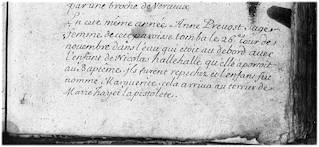 par une broche de Voraux
En cete même année Anne Prevost sage
femme de cete paroisse tomba le 26e jour de
novembre dans l'eau qui etoit au debord avec
l'enfant de Nicolas hallehalle qu'elle aporoit
au Baptême, ils furent repechez et l'enfant fut
nommé Marguerite, cela arriva au terrier de
Marie hayet la pistolete.